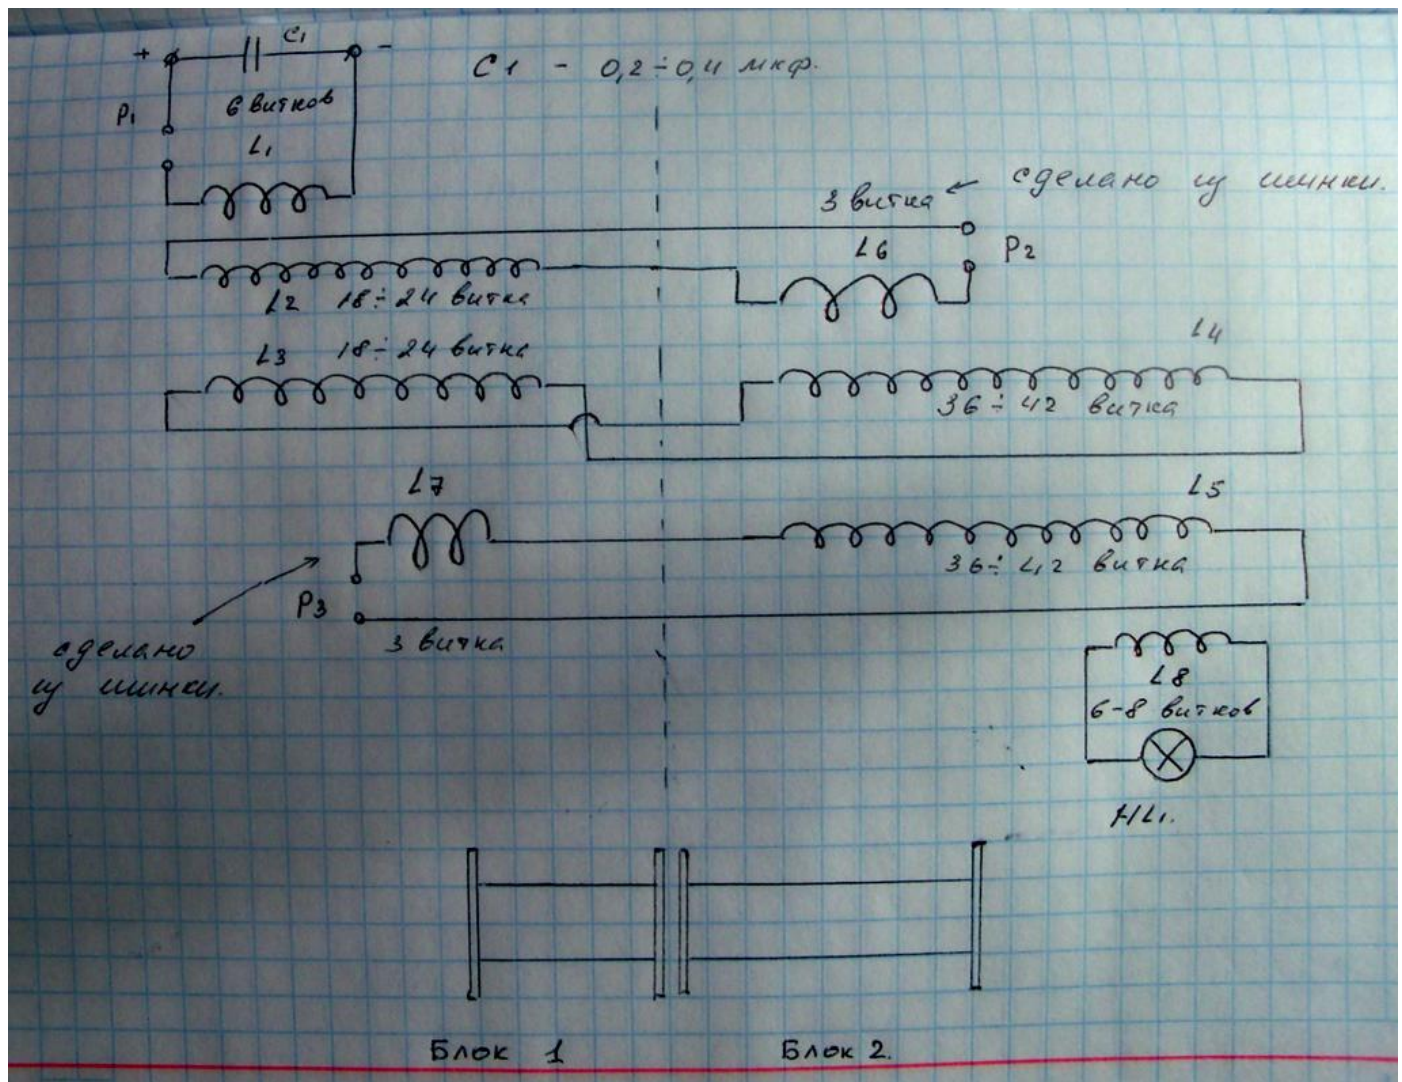 + C1 -
C1 - 0,2÷0,4 мкф.
P1
6 витков
L1
3 витка
сделано из шинки.
L6
P2
L2 18÷24 витка
L3 18÷24 витка
L4
36÷42 витка
L7
L5
36÷42 витка
P3
3 витка
сделано
из шинки.
L8
6-8 витков
HL1.
Блок 1
Блок 2.